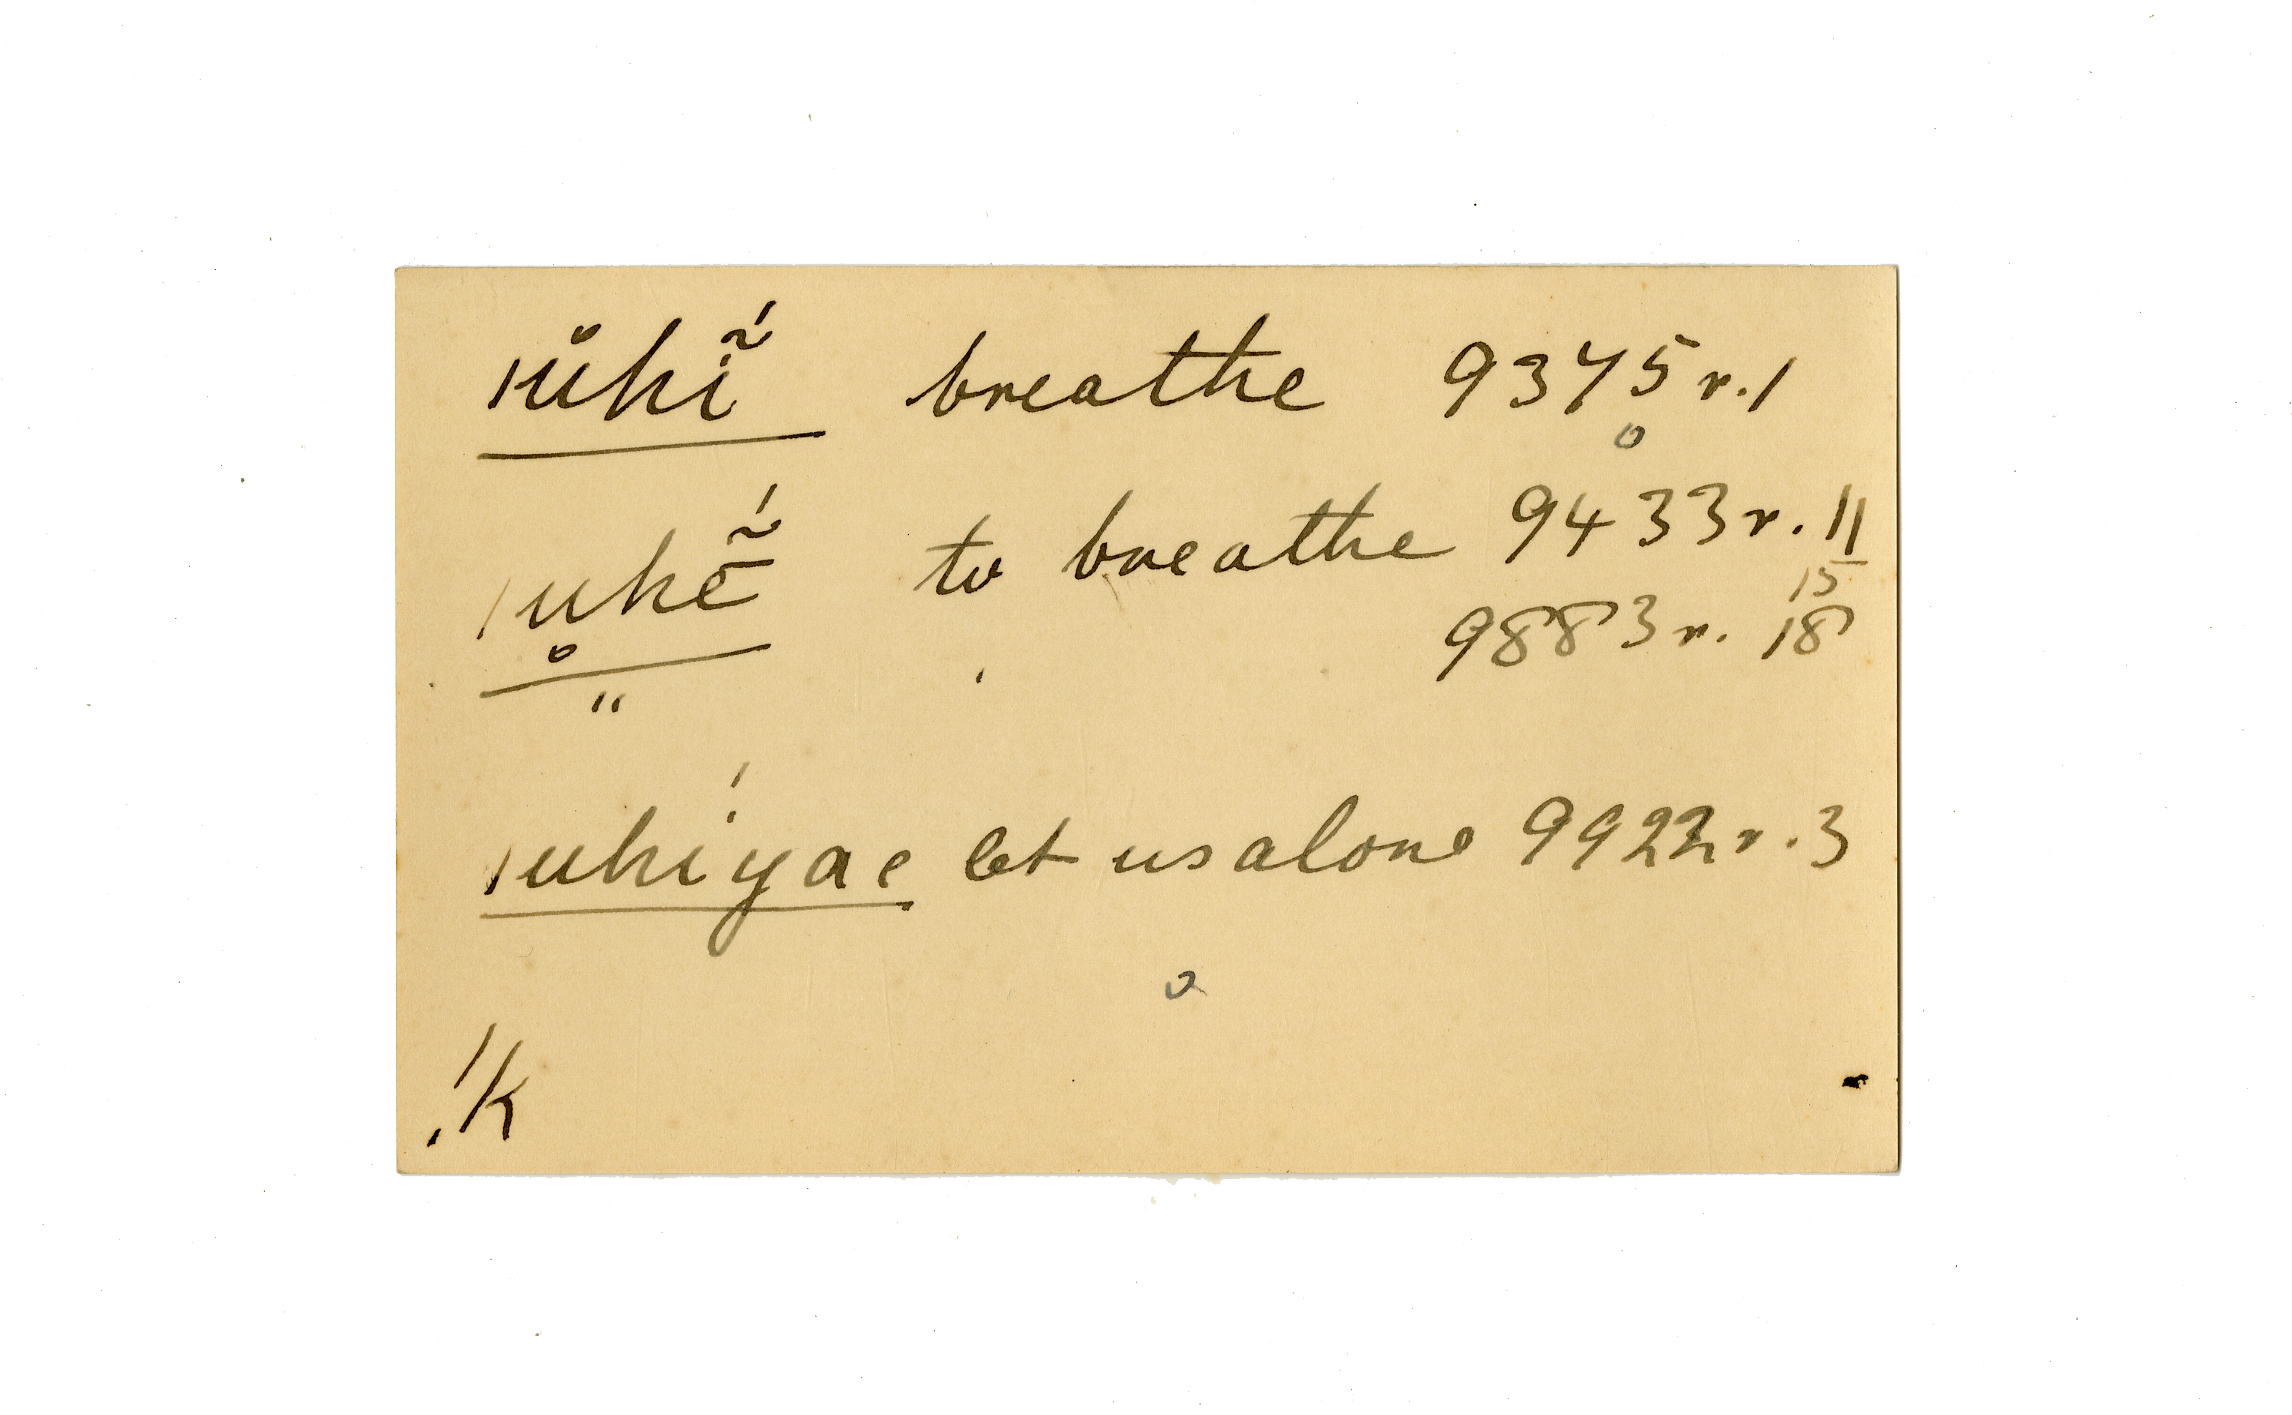 ǀůhĩ́ breathe 9375 r. 1
ǀu̥hẽ̄́ to breathe 9433 r. 11
15
9883 r. 18
"
ǀuhíyae let us alone 9922 r. 3
ǃk